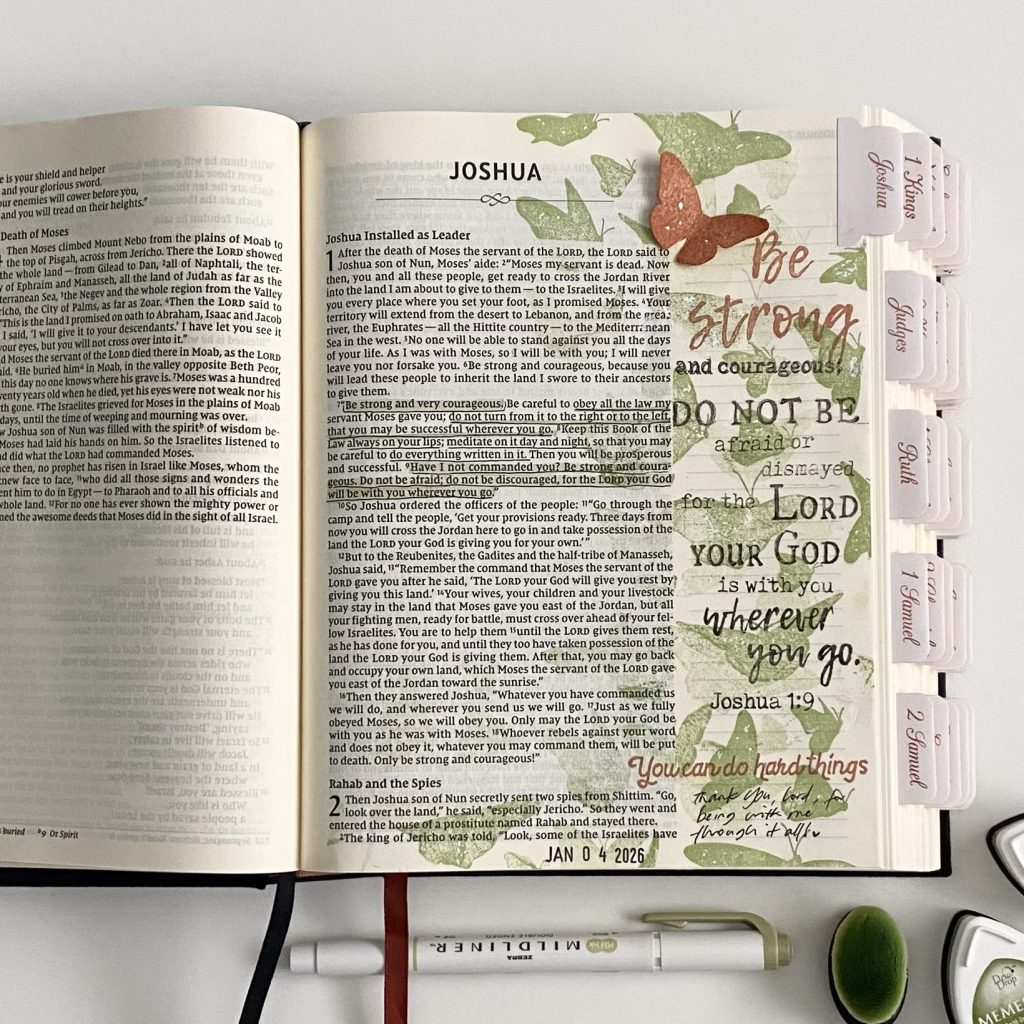 e is your shield and helper
and your glorious sword.
our enemies will cower before you,
and you will tread on their heights."
Death of Moses
Then Moses climbed Mount Nebo from the plains of Moab to
the top of Pisgah, across from Jericho. There the LORD showed
the whole land—from Gilead to Dan, ²all of Naphtali, the ter-
y of Ephraim and Manasseh, all the land of Judah as far as the
terranean Sea, ³the Negev and the whole region from the Valley
richo, the City of Palms, as far as Zoar. ⁴Then the LORD said to
"This is the land I promised on oath to Abraham, Isaac and Jacob
I said, 'I will give it to your descendants.' I have let you see it
your eyes, but you will not cross over into it."
d Moses the servant of the LORD died there in Moab, as the LORD
said. ⁶He buried him in Moab, in the valley opposite Beth Peor,
this day no one knows where his grave is. ⁷Moses was a hundred
enty years old when he died, yet his eyes were not weak nor his
th gone. ⁸The Israelites grieved for Moses in the plains of Moab
days, until the time of weeping and mourning was over.
w Joshua son of Nun was filled with the spiritᵇ of wisdom be-
Moses had laid his hands on him. So the Israelites listened to
d did what the LORD had commanded Moses.
ce then, no prophet has risen in Israel like Moses, whom the
knew face to face, ¹¹who did all those signs and wonders the
ent him to do in Egypt—to Pharaoh and to all his officials and
whole land. ¹²For no one has ever shown the mighty power or
ned the awesome deeds that Moses did in the sight of all Israel.
buried ᵇ9 Or Spirit
JOSHUA
Joshua Installed as Leader
1 After the death of Moses the servant of the LORD, the LORD said to
Joshua son of Nun, Moses' aide: ²"Moses my servant is dead. Now
then, you and all these people, get ready to cross the Jordan River
into the land I am about to give to them—to the Israelites. ³I will give
you every place where you set your foot, as I promised Moses. ⁴Your
territory will extend from the desert to Lebanon, and from the great
river, the Euphrates—all the Hittite country—to the Mediterranean
Sea in the west. ⁵No one will be able to stand against you all the days
of your life. As I was with Moses, so I will be with you; I will never
leave you nor forsake you. ⁶Be strong and courageous, because you
will lead these people to inherit the land I swore to their ancestors
to give them.
⁷"Be strong and very courageous. Be careful to obey all the law my
servant Moses gave you; do not turn from it to the right or to the left,
that you may be successful wherever you go. ⁸Keep this Book of the
Law always on your lips; meditate on it day and night, so that you may
be careful to do everything written in it. Then you will be prosperous
and successful. ⁹Have I not commanded you? Be strong and coura-
geous. Do not be afraid; do not be discouraged, for the LORD your God
will be with you wherever you go."
¹⁰So Joshua ordered the officers of the people: ¹¹"Go through the
camp and tell the people, 'Get your provisions ready. Three days from
now you will cross the Jordan here to go in and take possession of the
land the LORD your God is giving you for your own.'"
¹²But to the Reubenites, the Gadites and the half-tribe of Manasseh,
Joshua said, ¹³"Remember the command that Moses the servant of the
LORD gave you after he said, 'The LORD your God will give you rest by
giving you this land.' ¹⁴Your wives, your children and your livestock
may stay in the land that Moses gave you east of the Jordan, but all
your fighting men, ready for battle, must cross over ahead of your fel-
low Israelites. You are to help them ¹⁵until the LORD gives them rest,
as he has done for you, and until they too have taken possession of the
land the LORD your God is giving them. After that, you may go back
and occupy your own land, which Moses the servant of the LORD gave
you east of the Jordan toward the sunrise."
¹⁶Then they answered Joshua, "Whatever you have commanded us
we will do, and wherever you send us we will go. ¹⁷Just as we fully
obeyed Moses, so we will obey you. Only may the LORD your God be
with you as he was with Moses. ¹⁸Whoever rebels against your word
and does not obey it, whatever you may command them, will be put
to death. Only be strong and courageous!"
Rahab and the Spies
2 Then Joshua son of Nun secretly sent two spies from Shittim. "Go,
look over the land," he said, "especially Jericho." So they went and
entered the house of a prostitute named Rahab and stayed there.
²The king of Jericho was told, "Look, some of the Israelites have
JAN 0 4 2026
Be
strong
and courageous;
DO NOT BE
afraid or
dismayed
for the LORD
YOUR GOD
is with you
wherever
you go.
Joshua 1:9
You can do hard things
Thank you, Lord, for
being with me
through it all
Joshua
1 Kings
Judges
Ruth
1 Samuel
2 Samuel
ZEBRA
MILDLINER
DOUBLE ENDED
Dew Drop
MEME